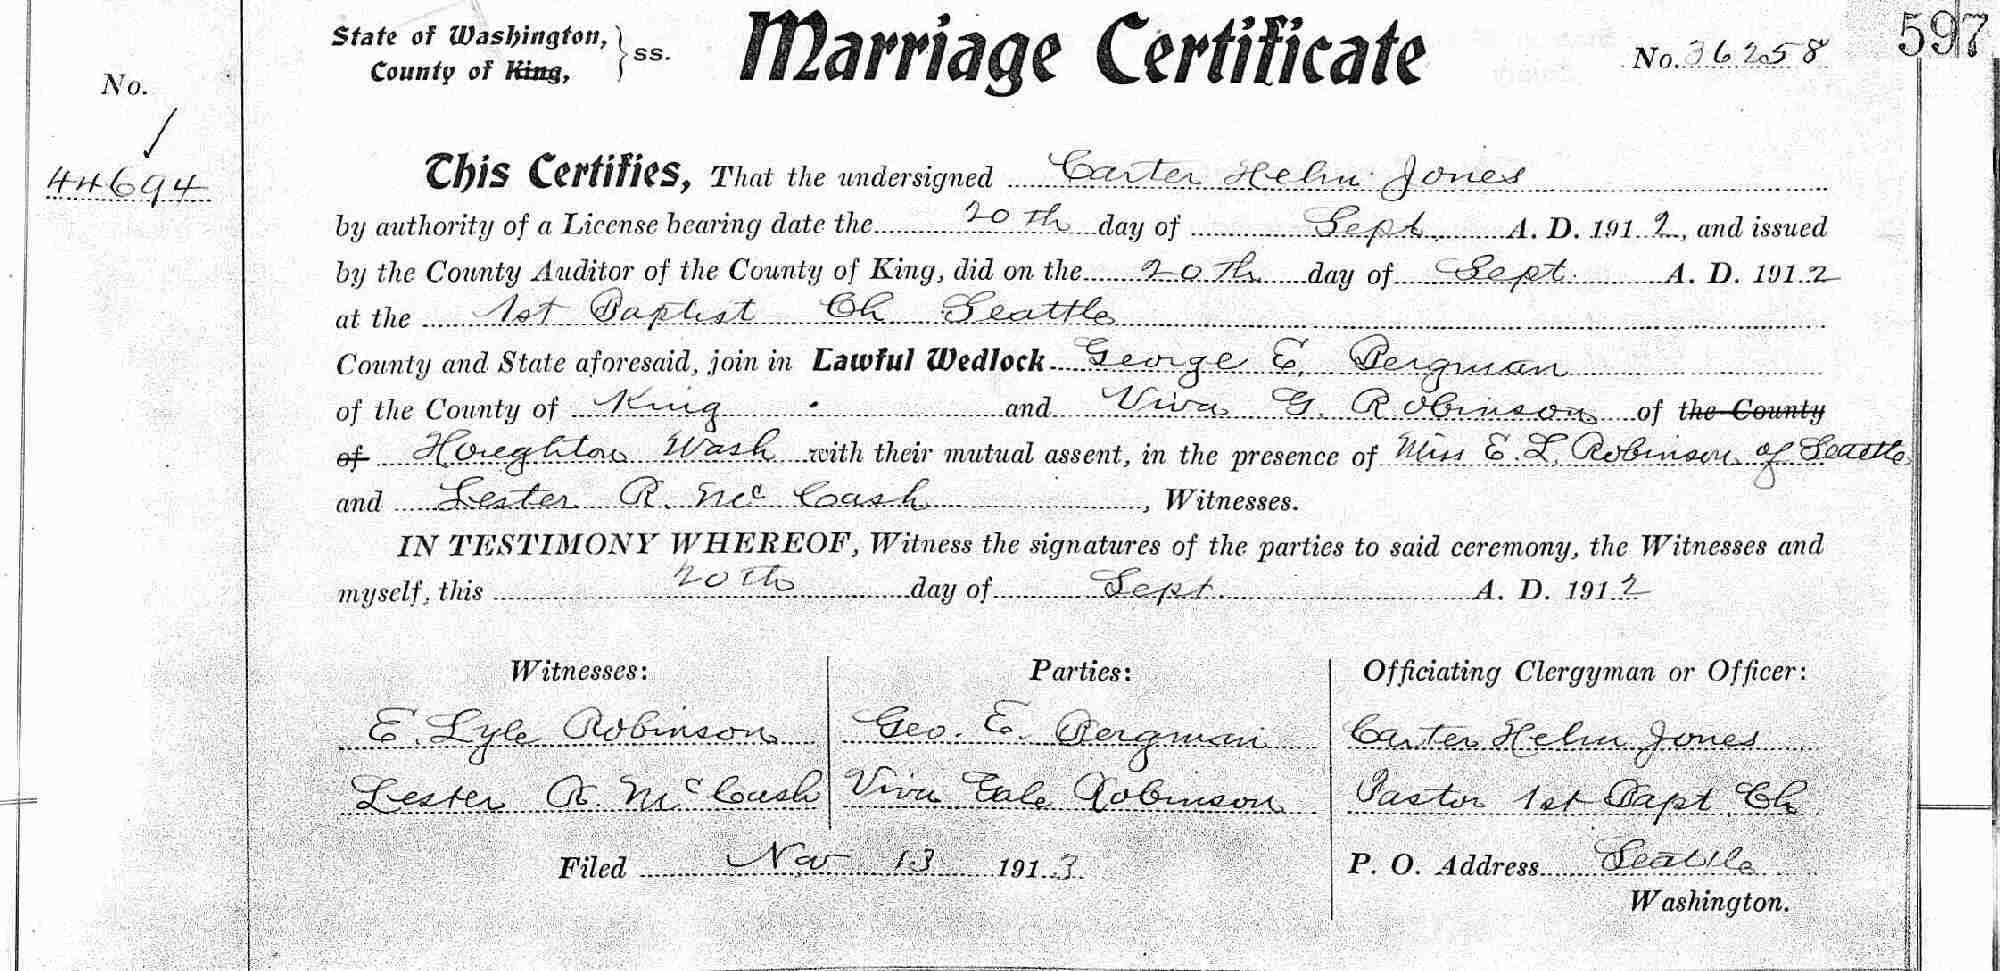 597
State of Washington, } ss.
County of King,
Marriage Certificate
No. 36258
No.
44694
This Certifies, That the undersigned Carter Helm Jones
by authority of a License bearing date the 20th day of Sept. A. D. 1912, and issued
by the County Auditor of the County of King, did on the 20th day of Sept. A. D. 1912
at the 1st Baptist Ch Seattle
County and State aforesaid, join in Lawful Wedlock George E. Bergman
of the County of King and Viva G. Robinson of the County
of Houghton Wash with their mutual assent, in the presence of Miss E. L. Robinson of Seattle
and Lester R. McCash, Witnesses.
IN TESTIMONY WHEREOF, Witness the signatures of the parties to said ceremony, the Witnesses and
myself, this 20th day of Sept. A. D. 1912
Witnesses:
E. Lyle Robinson
Lester R. McCash
Parties:
Geo. E. Bergman
Viva Robinson
Officiating Clergyman or Officer:
Carter Helm Jones
Pastor 1st Bapt. Ch
Filed Nov 13 1913.
P. O. Address Seattle
Washington.